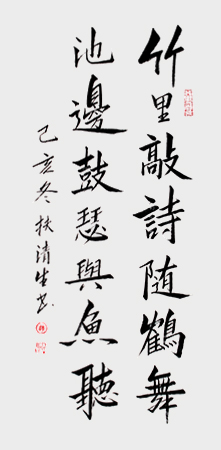 竹里敲詩随鶴舞
池邊鼓瑟與魚聽
己亥冬扶清生书